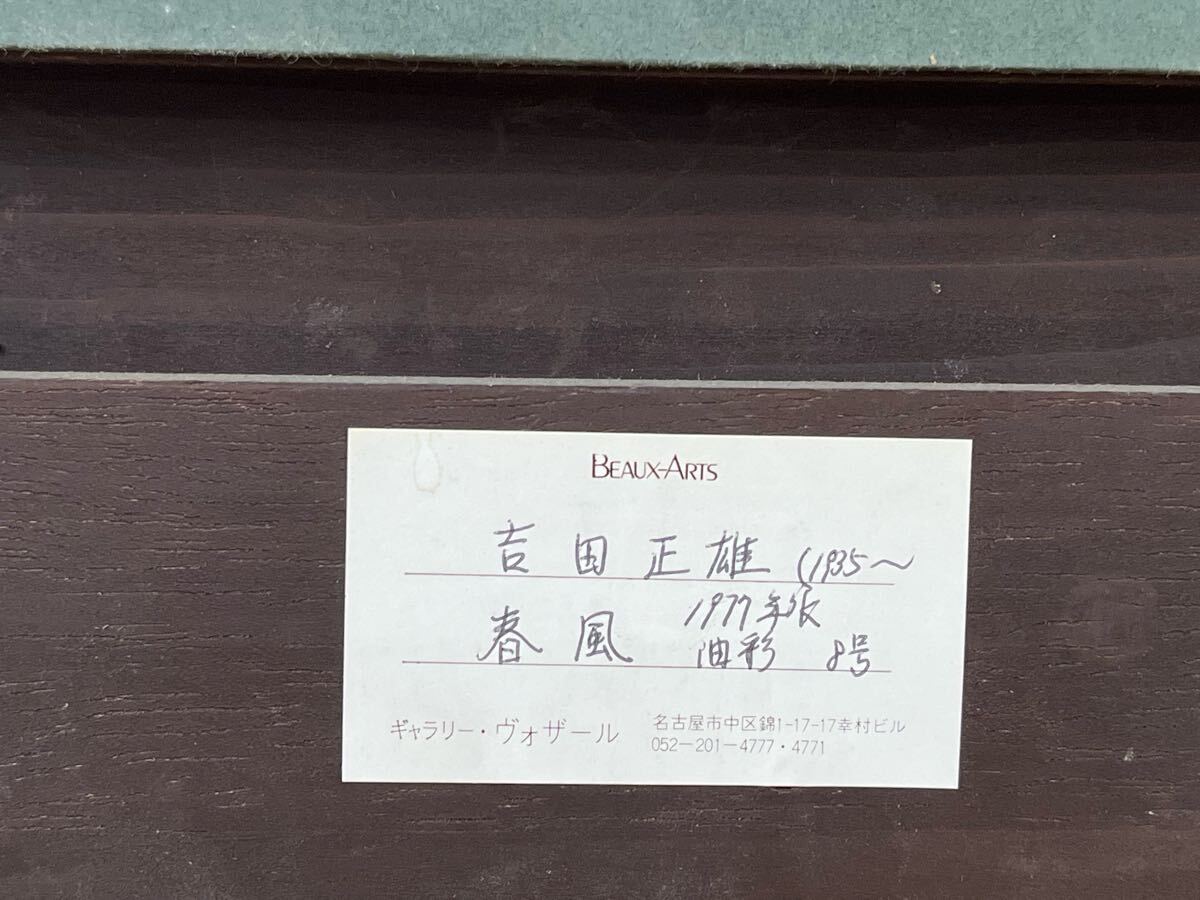 BEAUX-ARTS
吉田正雄 (1935〜
春風 1977年
油彩 8号
ギャラリー・ヴォザール 名古屋市中区錦1-17-17幸村ビル
052-201-4777・4771